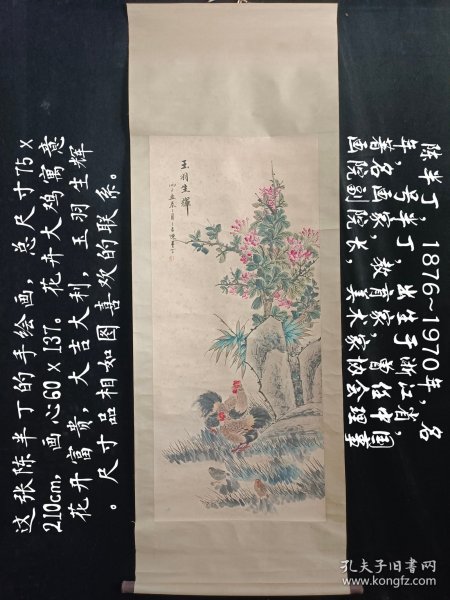 陈半丁，1876~1970年，名
年，号半丁，出生于浙江省，
著名画家，教育家，曾任中国
画院副院长，美术家协会理事
玉羽生輝
这张陈半丁的手绘画，总尺寸75×
210cm，画心60×137。花开大鸡寓意
花开富贵，大吉大利，玉羽生辉
。尺寸品相如图喜欢的联系。
孔夫子旧书网
www.kongfz.com